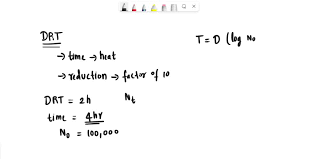 DRT
→ time → heat
→ reduction → factor of 10
DRT = 2h
time = 4hr
N₀ = 100,000
Nt
T = D (log N₀